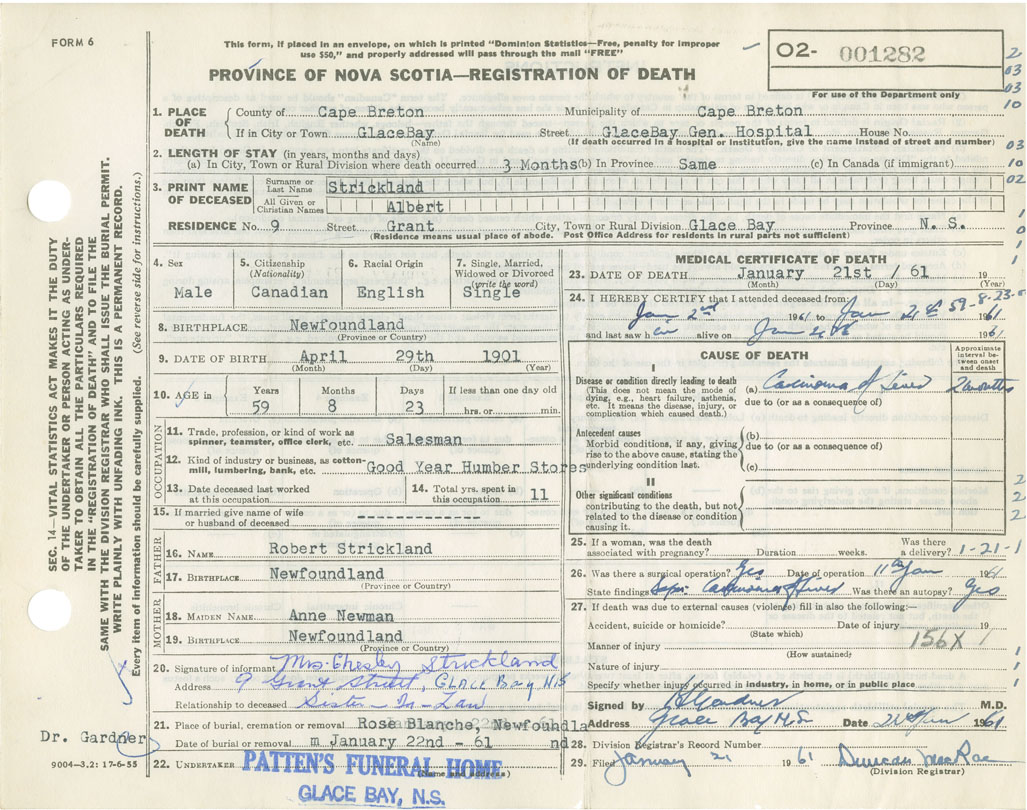 FORM 6
This form, if placed in an envelope, on which is printed "Dominion Statistics—Free, penalty for improper
use $50," and properly addressed will pass through the mail "FREE"
PROVINCE OF NOVA SCOTIA—REGISTRATION OF DEATH
O2- 001282
For use of the Department only
SEC. 14—VITAL STATISTICS ACT MAKES IT THE DUTY
OF THE UNDERTAKER OR PERSON ACTING AS UNDER-
TAKER TO OBTAIN ALL THE PARTICULARS REQUIRED
IN THE "REGISTRATION OF DEATH" AND TO FILE THE
SAME WITH THE DIVISION REGISTRAR WHO SHALL ISSUE THE BURIAL PERMIT.
WRITE PLAINLY WITH UNFADING INK. THIS IS A PERMANENT RECORD.
Every item of information should be carefully supplied. (See reverse side for instructions.)
1. PLACE OF DEATH
County of Cape Breton Municipality of Cape Breton
If in City or Town GlaceBay Street GlaceBay Gen. Hospital House No.
(Name) (If death occurred in a hospital or institution, give the name instead of street and number)
2. LENGTH OF STAY (in years, months and days)
(a) In City, Town or Rural Division where death occurred 3 Months (b) In Province Same (c) In Canada (if immigrant)
3. PRINT NAME OF DECEASED
Surname or Last Name Strickland
All Given or Christian Names Albert
RESIDENCE No. 9 Street Grant City, Town or Rural Division Glace Bay Province N. S.
(Residence means usual place of abode. Post Office Address for residents in rural parts not sufficient)
4. Sex
Male
5. Citizenship
(Nationality)
Canadian
6. Racial Origin
English
7. Single, Married,
Widowed or Divorced
(write the word)
Single
8. BIRTHPLACE Newfoundland
(Province or Country)
9. DATE OF BIRTH April 29th 1901
(Month) (Day) (Year)
10. AGE in
Years Months Days If less than one day old
59 8 23 hrs. or min.
OCCUPATION
11. Trade, profession, or kind of work as
spinner, teamster, office clerk, etc. Salesman
12. Kind of industry or business, as cotton-
mill, lumbering, bank, etc. Good Year Humber Stores
13. Date deceased last worked
at this occupation
14. Total yrs. spent in
this occupation 11
15. If married give name of wife
or husband of deceased
FATHER
16. NAME Robert Strickland
17. BIRTHPLACE Newfoundland
(Province or Country)
MOTHER
18. MAIDEN NAME Anne Newman
19. BIRTHPLACE Newfoundland
(Province or Country)
20. Signature of informant Mrs. Chesley Strickland
Address 9 Grant Street, GLACE BAY N.S
Relationship to deceased Sister-In-Law
21. Place of burial, cremation or removal Rose Blanche, Newfoundla
Date of burial or removal m January 22nd - 61 nd
22. UNDERTAKER PATTEN'S FUNERAL HOME
(Name and address)
GLACE BAY, N.S.
Dr. Gardner
9004—3.2: 17-6-55
MEDICAL CERTIFICATE OF DEATH
23. DATE OF DEATH January 21st / 61 19
(Month) (Day) (Year)
24. I HEREBY CERTIFY that I attended deceased from
59-8-23
Jan 2nd 1961 to Jan 21st 1961
and last saw him alive on Jan 1961
CAUSE OF DEATH
Approximate
interval be-
tween onset
and death
I
Disease or condition directly leading to death
(This does not mean the mode of
dying, e.g., heart failure, asthenia,
etc. It means the disease, injury, or
complication which caused death.)
(a) Carcinoma of Liver 2 months
due to (or as a consequence of)
Antecedent causes
Morbid conditions, if any, giving
rise to the above cause, stating the
underlying condition last.
(b)
due to (or as a consequence of)
(c)
II
Other significant conditions
contributing to the death, but not
related to the disease or condition
causing it.
25. If a woman, was the death
associated with pregnancy? Duration weeks.
Was there
a delivery? 1-21-1
26. Was there a surgical operation? Yes Date of operation 11th Jan 1961
State findings Carcinoma of Liver Was there an autopsy? Yes
27. If death was due to external causes (violence) fill in also the following:—
Accident, suicide or homicide? Date of injury 19
(State which)
Manner of injury 156X
(How sustained)
Nature of injury
Specify whether injury occurred in industry, in home, or in public place
Signed by Gardner M.D.
Address Glace Bay N.S. Date 21 Jan 1961
28. Division Registrar's Record Number
29. Filed January 21 1961 Duncan MacRae
(Division Registrar)
2
03
03
10
03
10
02
1
0
1
1
2
2
2
1
1
1